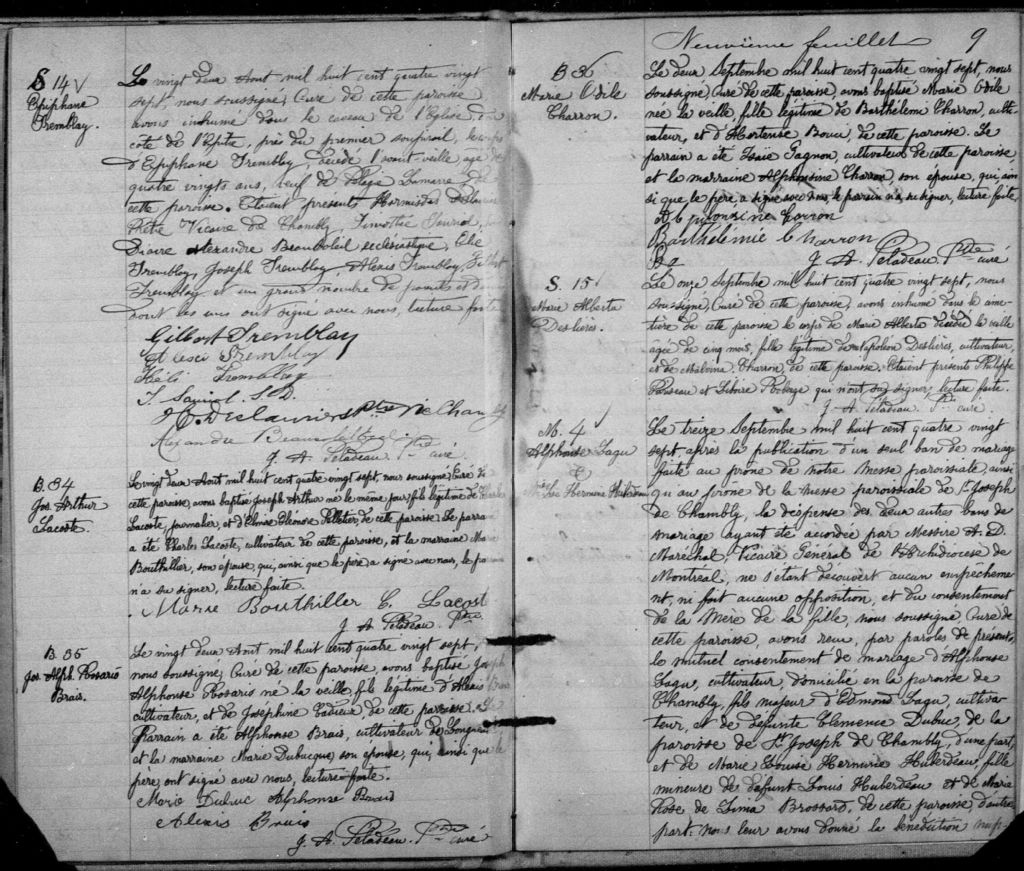 S 14
Epiphane
Tremblay.
Le vingt deux Aout mil huit cent quatre vingt
sept, nous soussigné, Curé de cette paroisse
avons inhumé dans le caveau de l'Eglise, du
côté de l'Epitre, près du premier soupirail, le corps
d'Epiphane Tremblay décédé l'avant veille agé de
quatre vingts ans, veuf de Pélagie Lamarre de
cette paroisse. Etaient présents Hormisdas Deslauriers
Prêtre Vicaire de Chambly, Timothée Sauriol,
Diacre Alexandre Beausoleil ecclésiastique, Elie
Tremblay, Joseph Tremblay, Alexis Tremblay, Gilbert
Tremblay et un grand nombre de parents et d'amis
dont les uns ont signé avec nous, lecture faite
Gilbert Tremblay
Alexis Tremblay
Héli Tremblay
T. Sauriol. S. D.
H. Deslauriers Ptre Vic Chambly
Alexandre Beausoleil
J. A. Péladeau. Ptre curé.
B. 34
Jos. Arthur
Lacoste.
Le vingt deux Aout mil huit cent quatre vingt sept, nous soussigné, Curé de
cette paroisse, avons baptisé Joseph Arthur né le même jour, fils légitime de Charles
Lacoste, journalier, et d'Elmire Eléonore Pelletier, de cette paroisse. Le parrain
a été Charles Lacoste, cultivateur de cette paroisse, et la marraine Marie
Bouthillier, son epouse, qui, ainsi que le père, a signé avec nous, le parrain
n'a su signer, lecture faite.
Marie Bouthiller C. Lacost
J. A. Péladeau. Ptre
B. 35
Jos. Alph. Rosario
Brais.
Le vingt deux Aout mil huit cent quatre vingt sept,
nous soussigné, Curé de cette paroisse, avons baptisé Joseph
Alphonse Rosario né la veille, fils légitime d'Alexis Brais
cultivateur, et de Josephine Cadieux, de cette paroisse. Le
Parrain a été Alphonse Brais, cultivateur de Longueuil
et la marraine Marie Dubucque, son epouse, qui, ainsi que le
père, ont signé avec nous, lecture faite.
Marie Dubuc Alphonse
Alexis Brais
J. A. Péladeau. Ptre curé
Neuvième feuillet 9
B 36
Marie Odile
Charron.
Le deux Septembre mil huit cent quatre vingt sept, nous
soussigné, Curé de cette paroisse, avons baptisé Marie Odile
née la veille, fille légitime de Barthélemi Charron, culti-
vateur, et d'Hortense Bouir, de cette paroisse. Le
parrain a été Isaïe Gagnon, cultivateur de cette paroisse,
et la marraine Alphonsine Charron, son epouse, qui, ain-
si que le père, a signé avec nous, le parrain n'a su signer, lecture faite,
Barthélémie Charron
J. A. Péladeau Ptre curé
S. 15
Marie Alberta
Deslières.
Le onze Septembre mil huit cent quatre vingt sept, nous
soussigné, Curé de cette paroisse, avons inhumé dans le cime-
tière de cette paroisse le corps de Marie Alberta décédée la veille
agée de cinq mois, fille légitime de Napoléon Deslières, cultivateur,
et de Malvina Charron, de cette paroisse. Etaient présents Philippe
et Liboire Roberge qui n'ont su signer, lecture faite.
J. A. Péladeau. Ptre curé.
M. 4
Alphonse Lagu
&
Mie Lse Hermine Huberdeau
Le treize Septembre mil huit cent quatre vingt
sept, après la publication d'un seul ban de mariage
faite au prône de notre Messe paroissiale, ainsi
qu'au prône de la Messe paroissiale de St Joseph
de Chambly, la dispense des deux autres bans de
mariage ayant été accordée par Messire A. D.
Maréchal, Vicaire Général de l'Archidiocèse de
Montréal, ne s'étant découvert aucun empêcheme-
nt, ni fait aucune opposition, et du consentement
de la Mère de la fille, nous soussigné, Curé de
cette paroisse, avons reçu, par paroles de présents,
le mutuel consentement de mariage d'Alphonse
Lagu, cultivateur, domicilié en la paroisse de
Chambly, fils majeur d'Edmond Lagu, cultiva-
teur, et de défunte Clémence Dubuc, de la
paroisse de St Joseph de Chambly, d'une part,
et de Marie Louise Hermine Huberdeau, fille
mineure de défunt Louis Huberdeau et de Marie
Rose de Lima Brossard, de cette paroisse, d'autre
part. Nous leur avons donné la bénédiction nup-